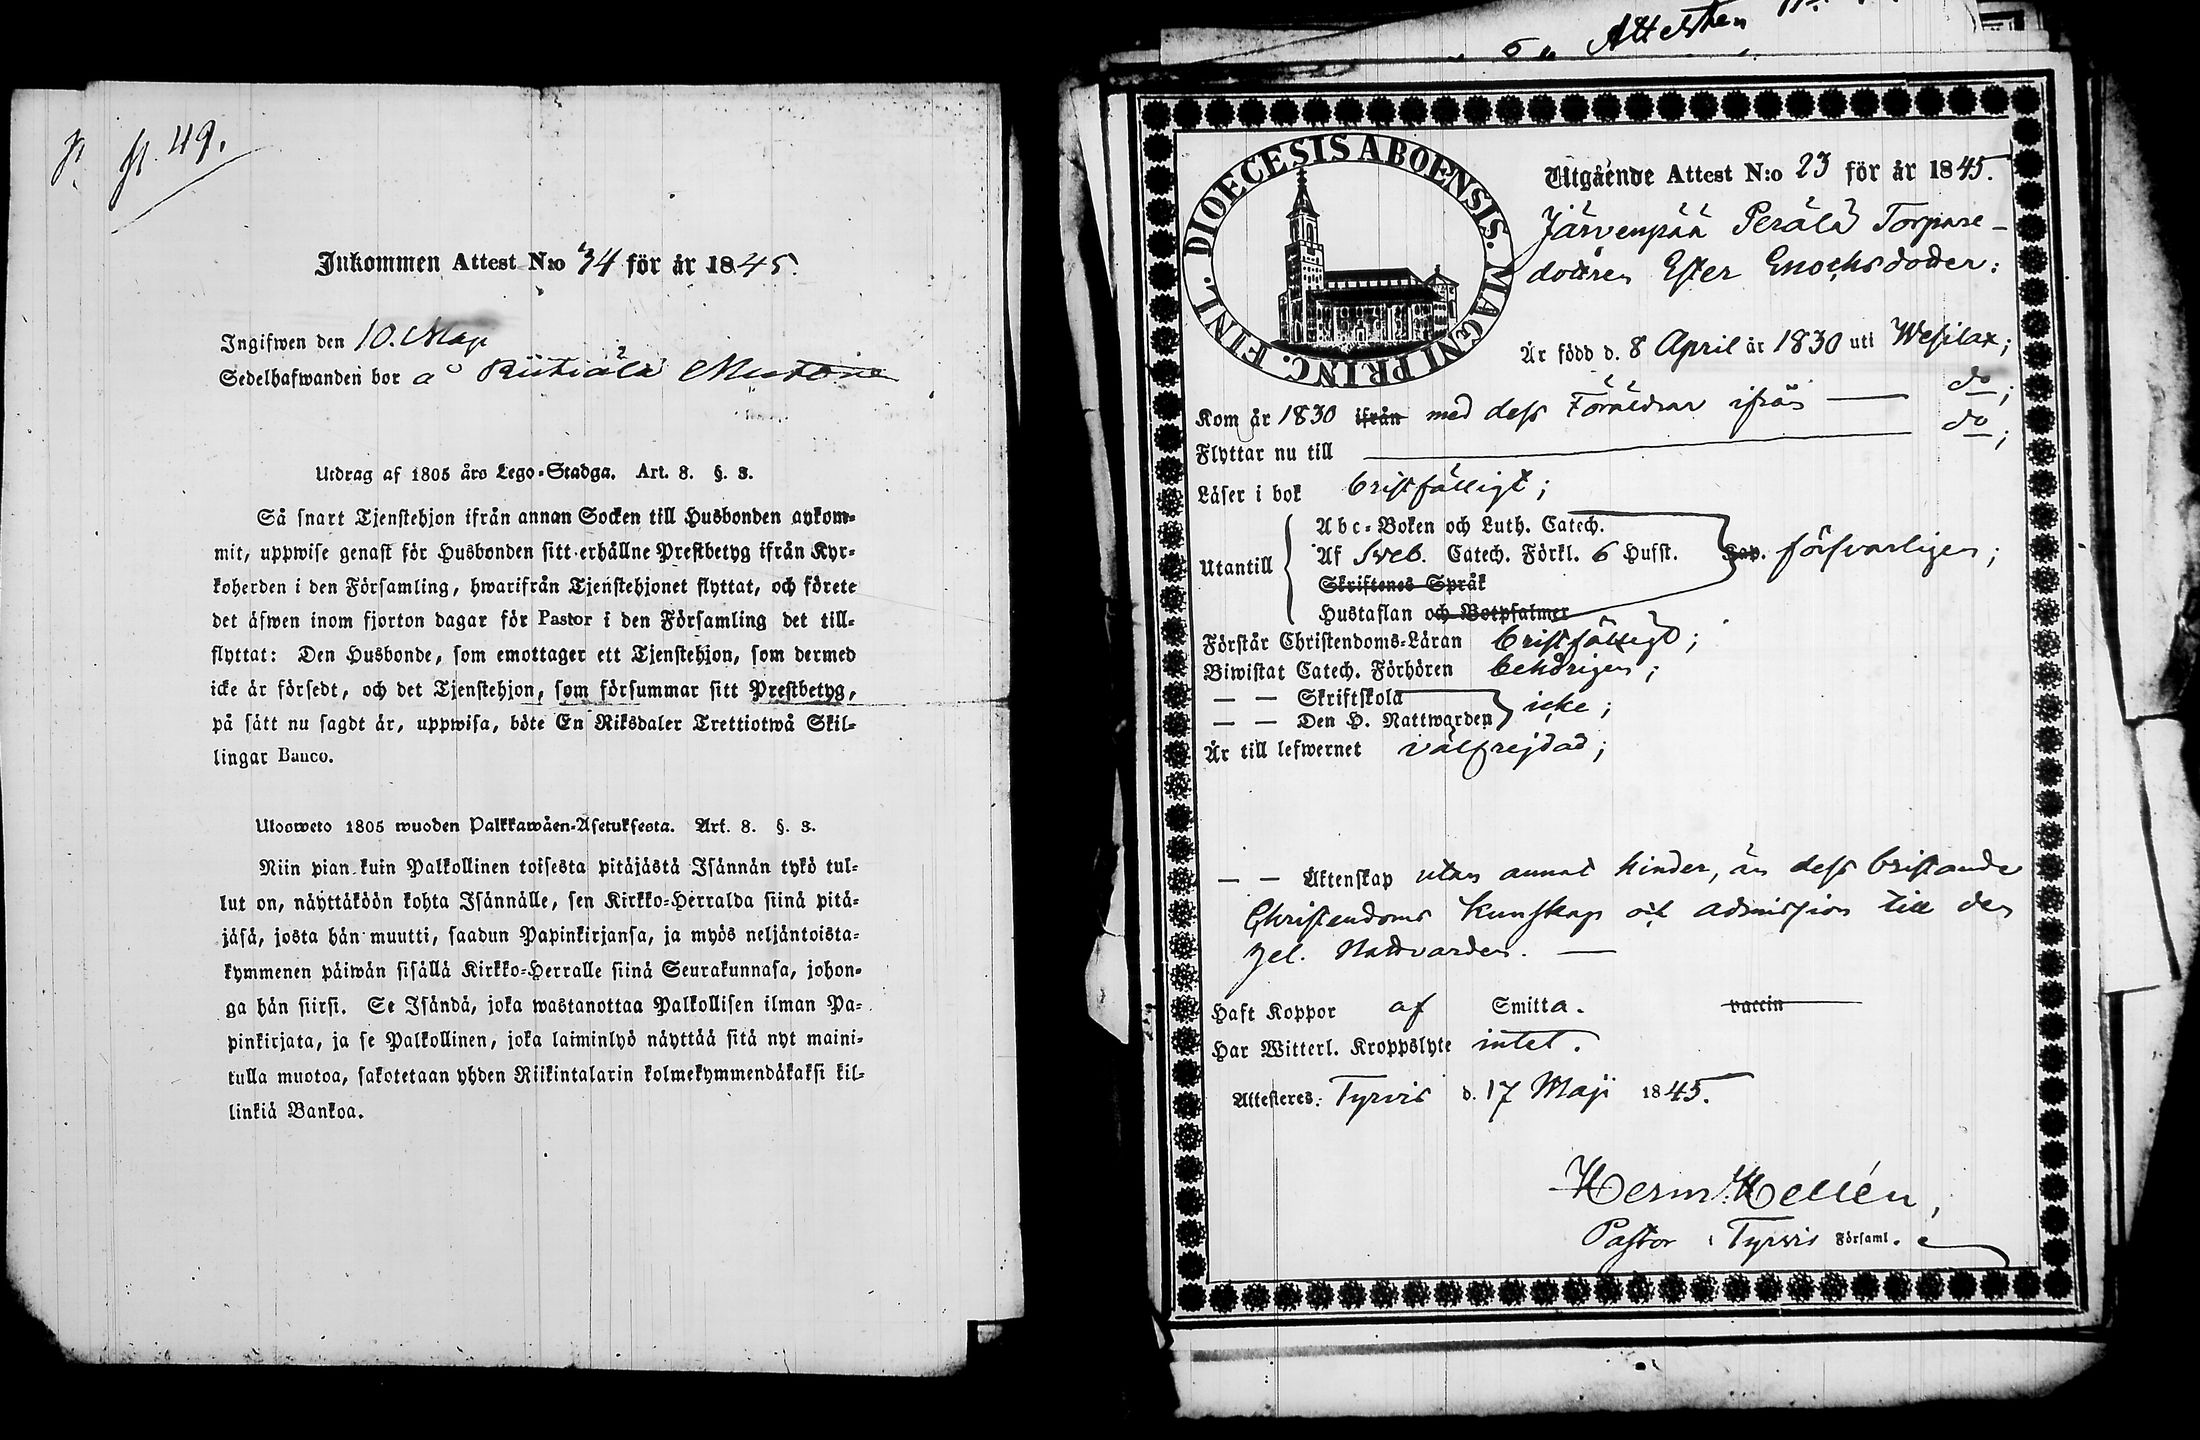 fl. 49.
Inkommen Attest N:o 34 för år 1845.
Ingifwen den 10. Maji
Sedelhafwanden bor å
Utdrag af 1805 års Lego-Stadga. Art. 8. §. 3.
Så snart Tjenstehjon ifrån annan Socken till Husbonden ankom-
mit, uppwise genast för Husbonden sitt erhållne Prestbetyg ifrån Kyr-
koherden i den Församling, hwarifrån Tjenstehjonet flyttat, och förete
det äfwen inom fjorton dagar för Pastor i den Församling det till-
flyttat: Den Husbonde, som emottager ett Tjenstehjon, som dermed
icke är försedt, och det Tjenstehjon, som försummar sitt Prestbetyg,
på sätt nu sagdt är, uppwisa, böte En Riksdaler Trettiotwå Skil-
lingar Banco.
Ulosweto 1805 wuoden Palkkawäen-Asetuksesta. Art. 8. §. 3.
Niin pian kuin Palkollinen toisesta pitäjästä Isännän tykö tul-
lut on, näyttäköön kohta Isännälle, sen Kirkko-Herralda siinä pitä-
jäsä, josta hän muutti, saadun Papinkirjansa, ja myös neljäntoista-
kymmenen päiwän sisällä Kirkko-Herralle siinä Seurakunnasa, johon-
ga hän siirsi. Se Isändä, joka wastanottaa Palkollisen ilman Pa-
pinkirjata, ja se Palkollinen, joka laiminlyö näyttää sitä nyt maini-
tulla muotoa, sakotetaan yhden Riikintalarin kolmekymmendäkaksi kil-
linkiä Bankoa.
Attesten
DIOECESIS ABOENSIS. MAGNI PRINC. FINL.
Utgående Attest N:o 23 för år 1845.
Järvenpää Perälä Torpare-
dottren Ester Enochsdotter:
Är född d. 8 April år 1830 uti Wesilax;
Kom år 1830 ifrån med dess Föräldrar ifrån — do;
Flyttar nu till — do;
Läser i bok bristfälligt;
Utantill
Abc-Boken och Luth. Catech.
Af Sveb. Catech. Förkl. 6 Hufst. Cap. försvarligen;
Skriftenes Språk
Hustaflan och Botpsalmer
Förstår Christendoms-Läran bristfälligt;
Biwistat Catech. Förhören behörigen;
— — Skriftskola
— — Den H. Nattwarden icke;
Är till lefwernet välfrejdad;
— — Äktenskap utan annat hinder, än dess bristande
Christendoms kunskap och admission till den
hel. Nattvarden. —
Haft Koppor af Smitta. vaccin
Har Witterl. Kroppslyte intet.
Attesteres. Tyrvis d. 17 Maji 1845.
Herm. Hellén,
Pastor i Tyrvis Församl.